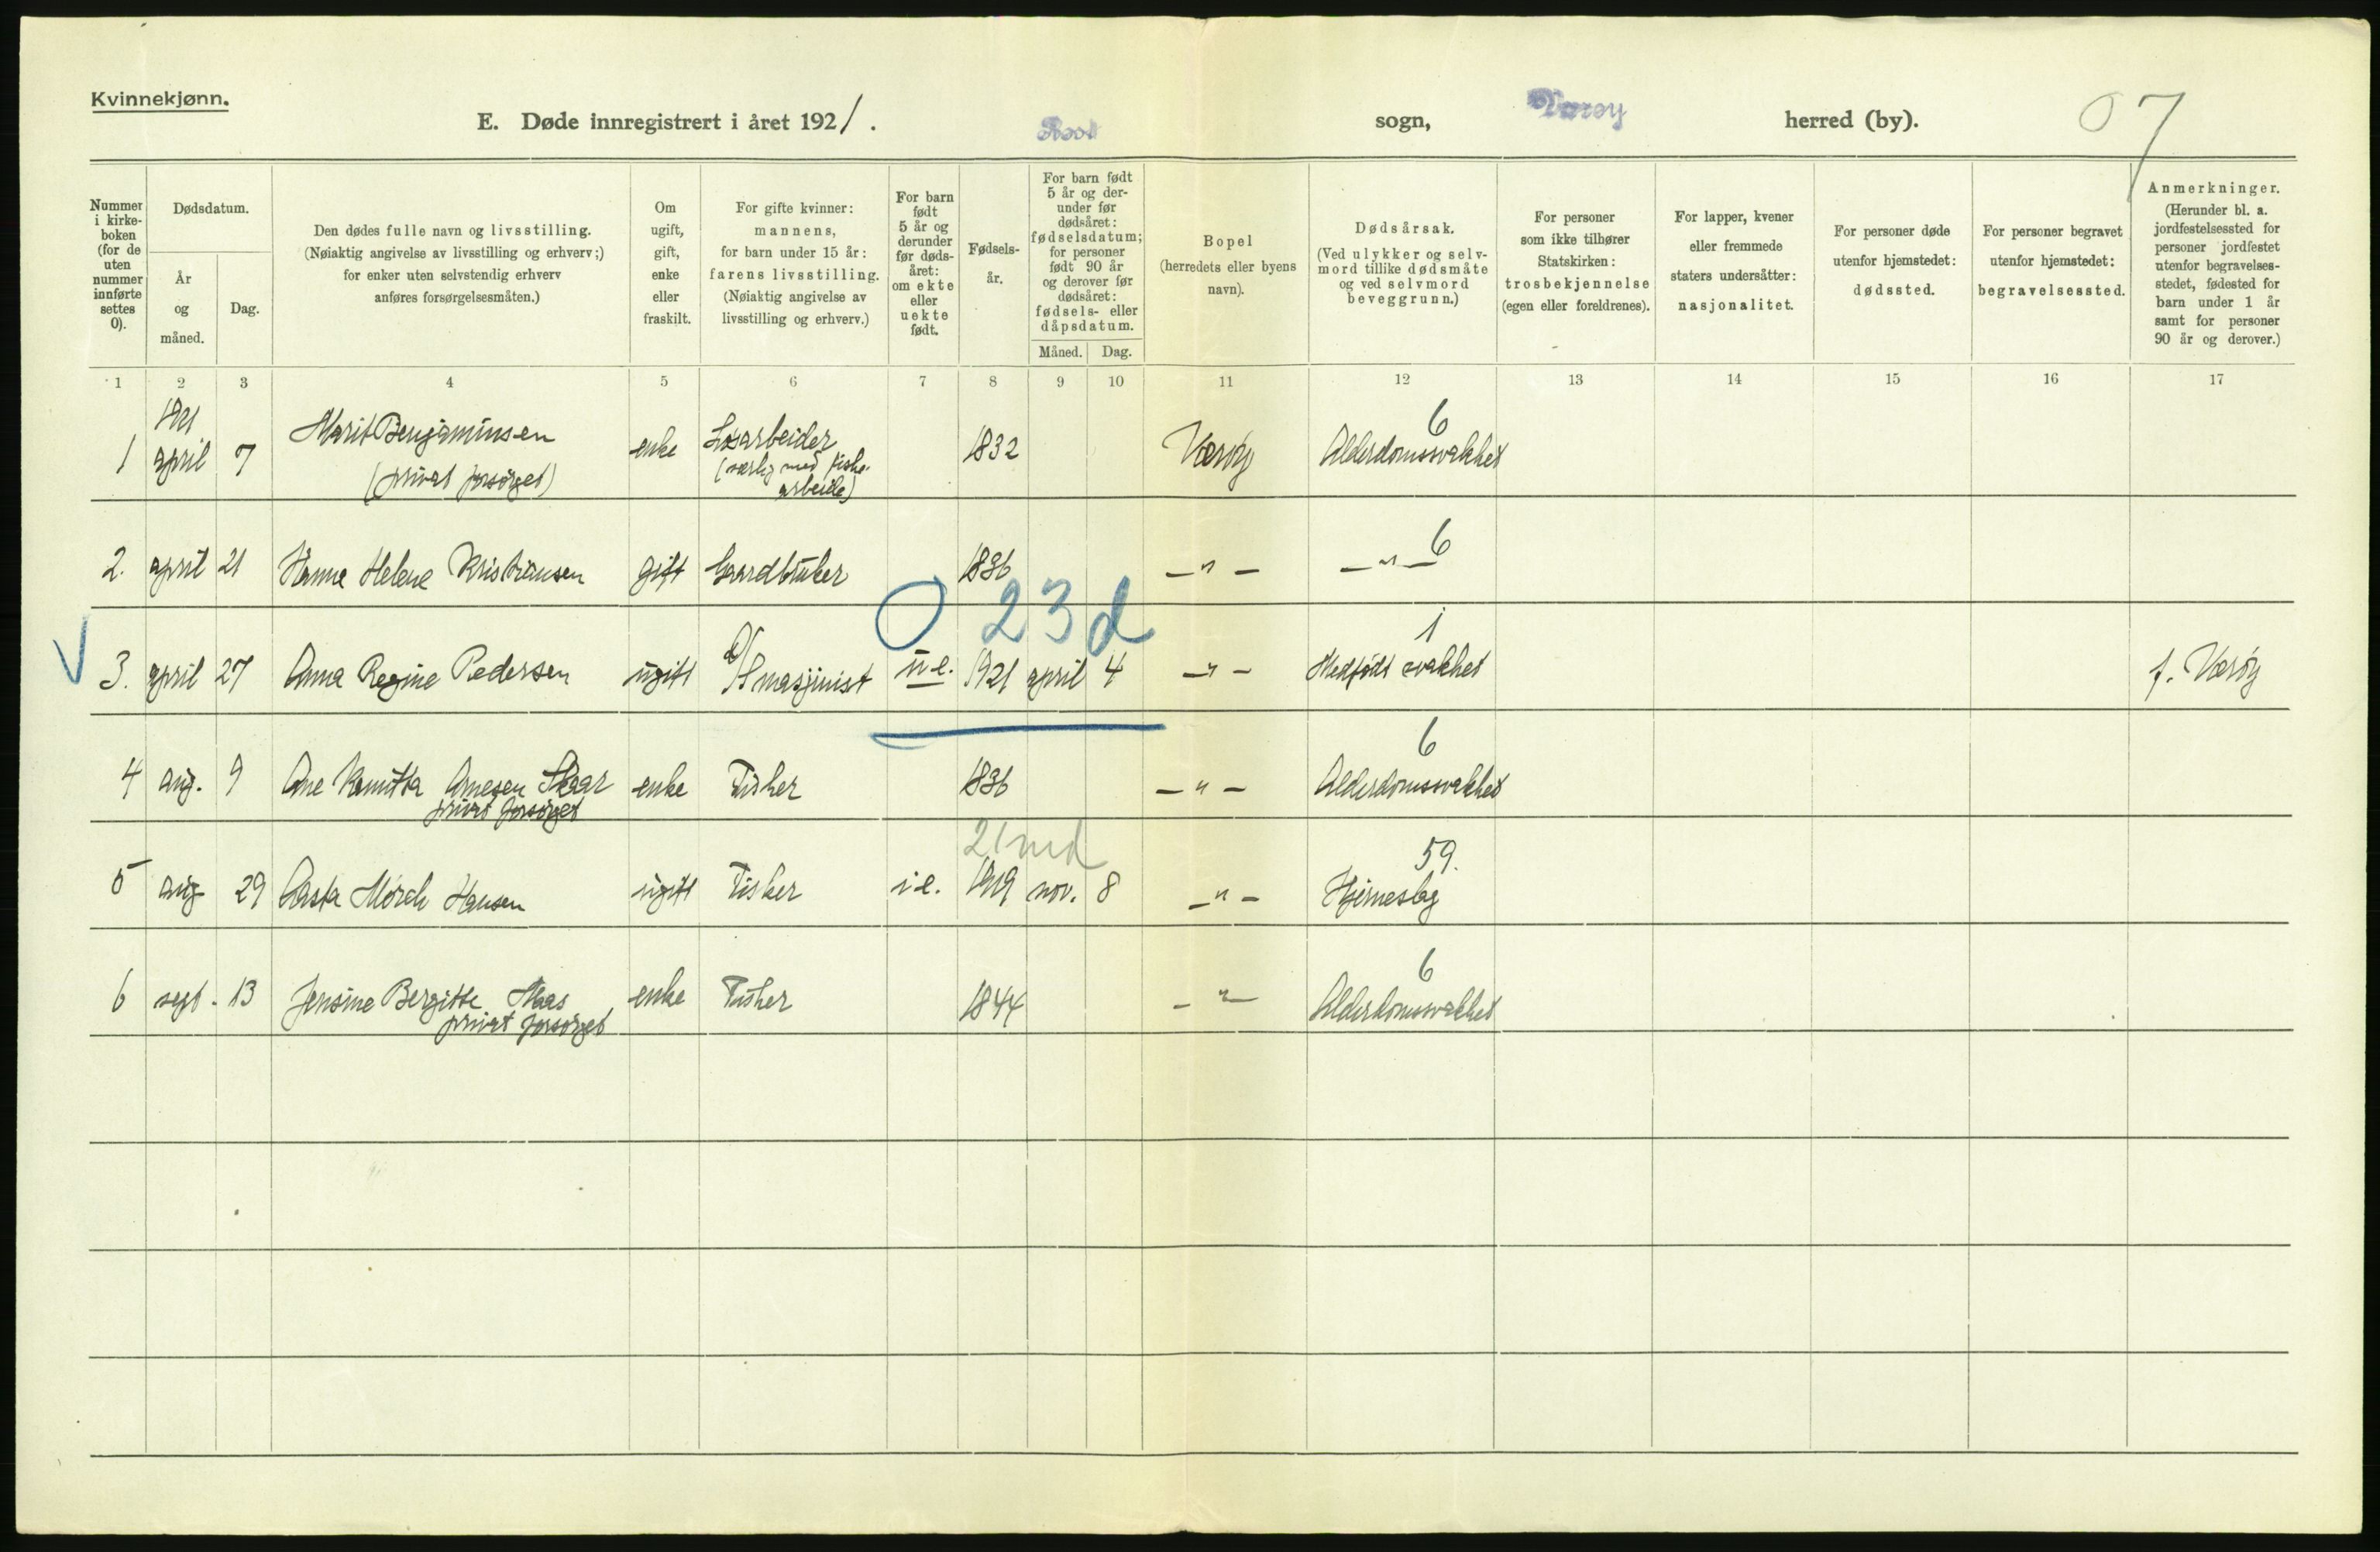 Kvinnekjønn.
E. Døde innregistrert i året 1921. Røst sogn, Værøy herred (by). 07
Nummer i kirke- boken (for de uten nummer innførte settes 0).
Dødsdatum.
År og måned.
Dag.
Den dødes fulle navn og livsstilling.
(Nøiaktig angivelse av livsstilling og erhverv;)
for enker uten selvstendig erhverv
anføres forsørgelsesmåten.)
Om ugift, gift, enke eller fraskilt.
For gifte kvinner:
mannens,
for barn under 15 år:
farens livsstilling.
(Nøiaktig angivelse av
livsstilling og erhverv.)
For barn født 5 år og derunder før døds- året: om ekte eller uekte født.
Fødsels- år.
For barn født 5 år og der- under før dødsåret: fødselsdatum; for personer født 90 år og derover før dødsåret: fødsels- eller dåpsdatum.
Måned. Dag.
Bopel
(herredets eller byens
navn).
Dødsårsak.
(Ved ulykker og selv-
mord tillike dødsmåte
og ved selvmord
beveggrunn.)
For personer
som ikke tilhører
Statskirken:
trosbekjennelse
(egen eller foreldrenes).
For lapper, kvener
eller fremmede
staters undersåtter:
nasjonalitet.
For personer døde
utenfor hjemstedet:
dødssted.
For personer begravet
utenfor hjemstedet:
begravelsessted.
Anmerkninger.
(Herunder bl. a.
jordfestelsessted for
personer jordfestet
utenfor begravelses-
stedet, fødested for
barn under 1 år
samt for personer
90 år og derover.)
1 2 3 4 5 6 7 8 9 10 11 12 13 14 15 16 17
1921 6
1 april 7 Marit Benjaminsen enke Løsarbeider 1832 Værøy Alderdomssvakhet
(privat forsørget) (særlig med fiske-
arbeide)
6
2. april 21 Hanna Helene Kristiansen gift Gaardbruker 1836 – " – – " –
0 23 d 1
3. april 27 Anna Regine Pedersen ugift D/S masjinist u e. 1921 april 4 – " – Medfødt svakhet f. Værøy
6
4 aug. 9 Ane Arnesen Skaar enke Fisker 1836 – " – Alderdomssvakhet
privat forsørget
21 md 59.
5 aug 29 Aasta Mørch Hansen ugift Fisker i e. 1919 nov. 8 – " – Hjerneslag
6
6 sept. 13 Jensine Bergitte enke Fisker 1844 – " – Alderdomssvakhet
privat forsørget